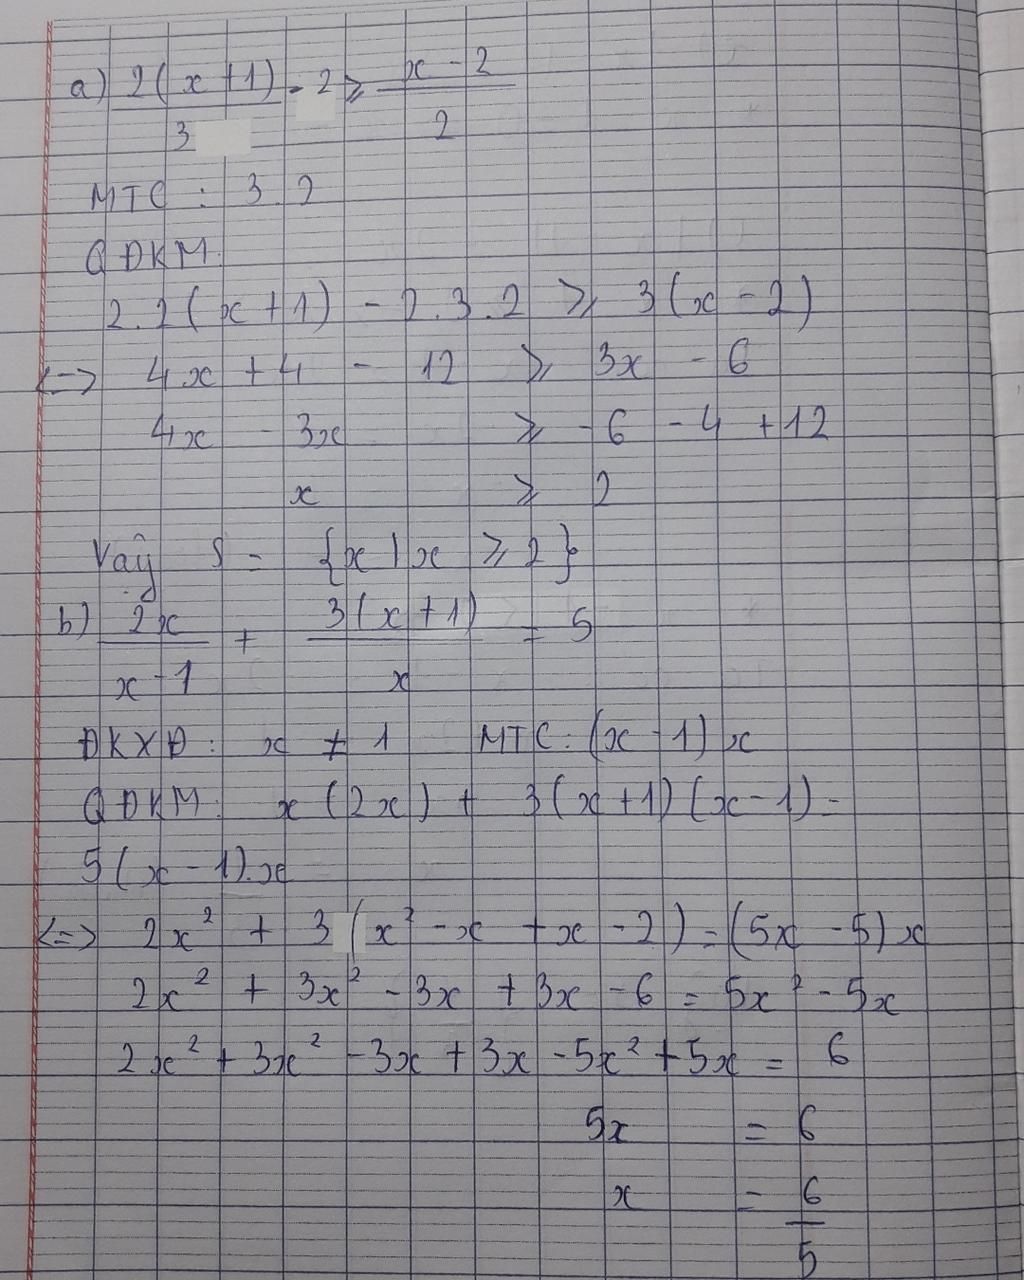 a) 2(x+1)/3 - 2 ⩾ x-2/2
MTC : 3.2
QĐKM
2.2(x+1) - 2.3.2 ⩾ 3(x-2)
<=> 4x + 4 - 12 ⩾ 3x - 6
4x - 3x ⩾ -6 - 4 + 12
x ⩾ 2
Vậy S = {x | x ⩾ 2}
b) 2x/x-1 + 3(x+1)/x = 5
ĐKXĐ: x ≠ 1 MTC: (x-1)x
QĐKM: x(2x) + 3(x+1)(x-1) =
5(x-1).x
<=> 2x² + 3(x² - x + x - 2) = (5x - 5)x
2x² + 3x² - 3x + 3x - 6 = 5x² - 5x
2x² + 3x² - 3x + 3x - 5x² + 5x = 6
5x = 6
x = 6/5